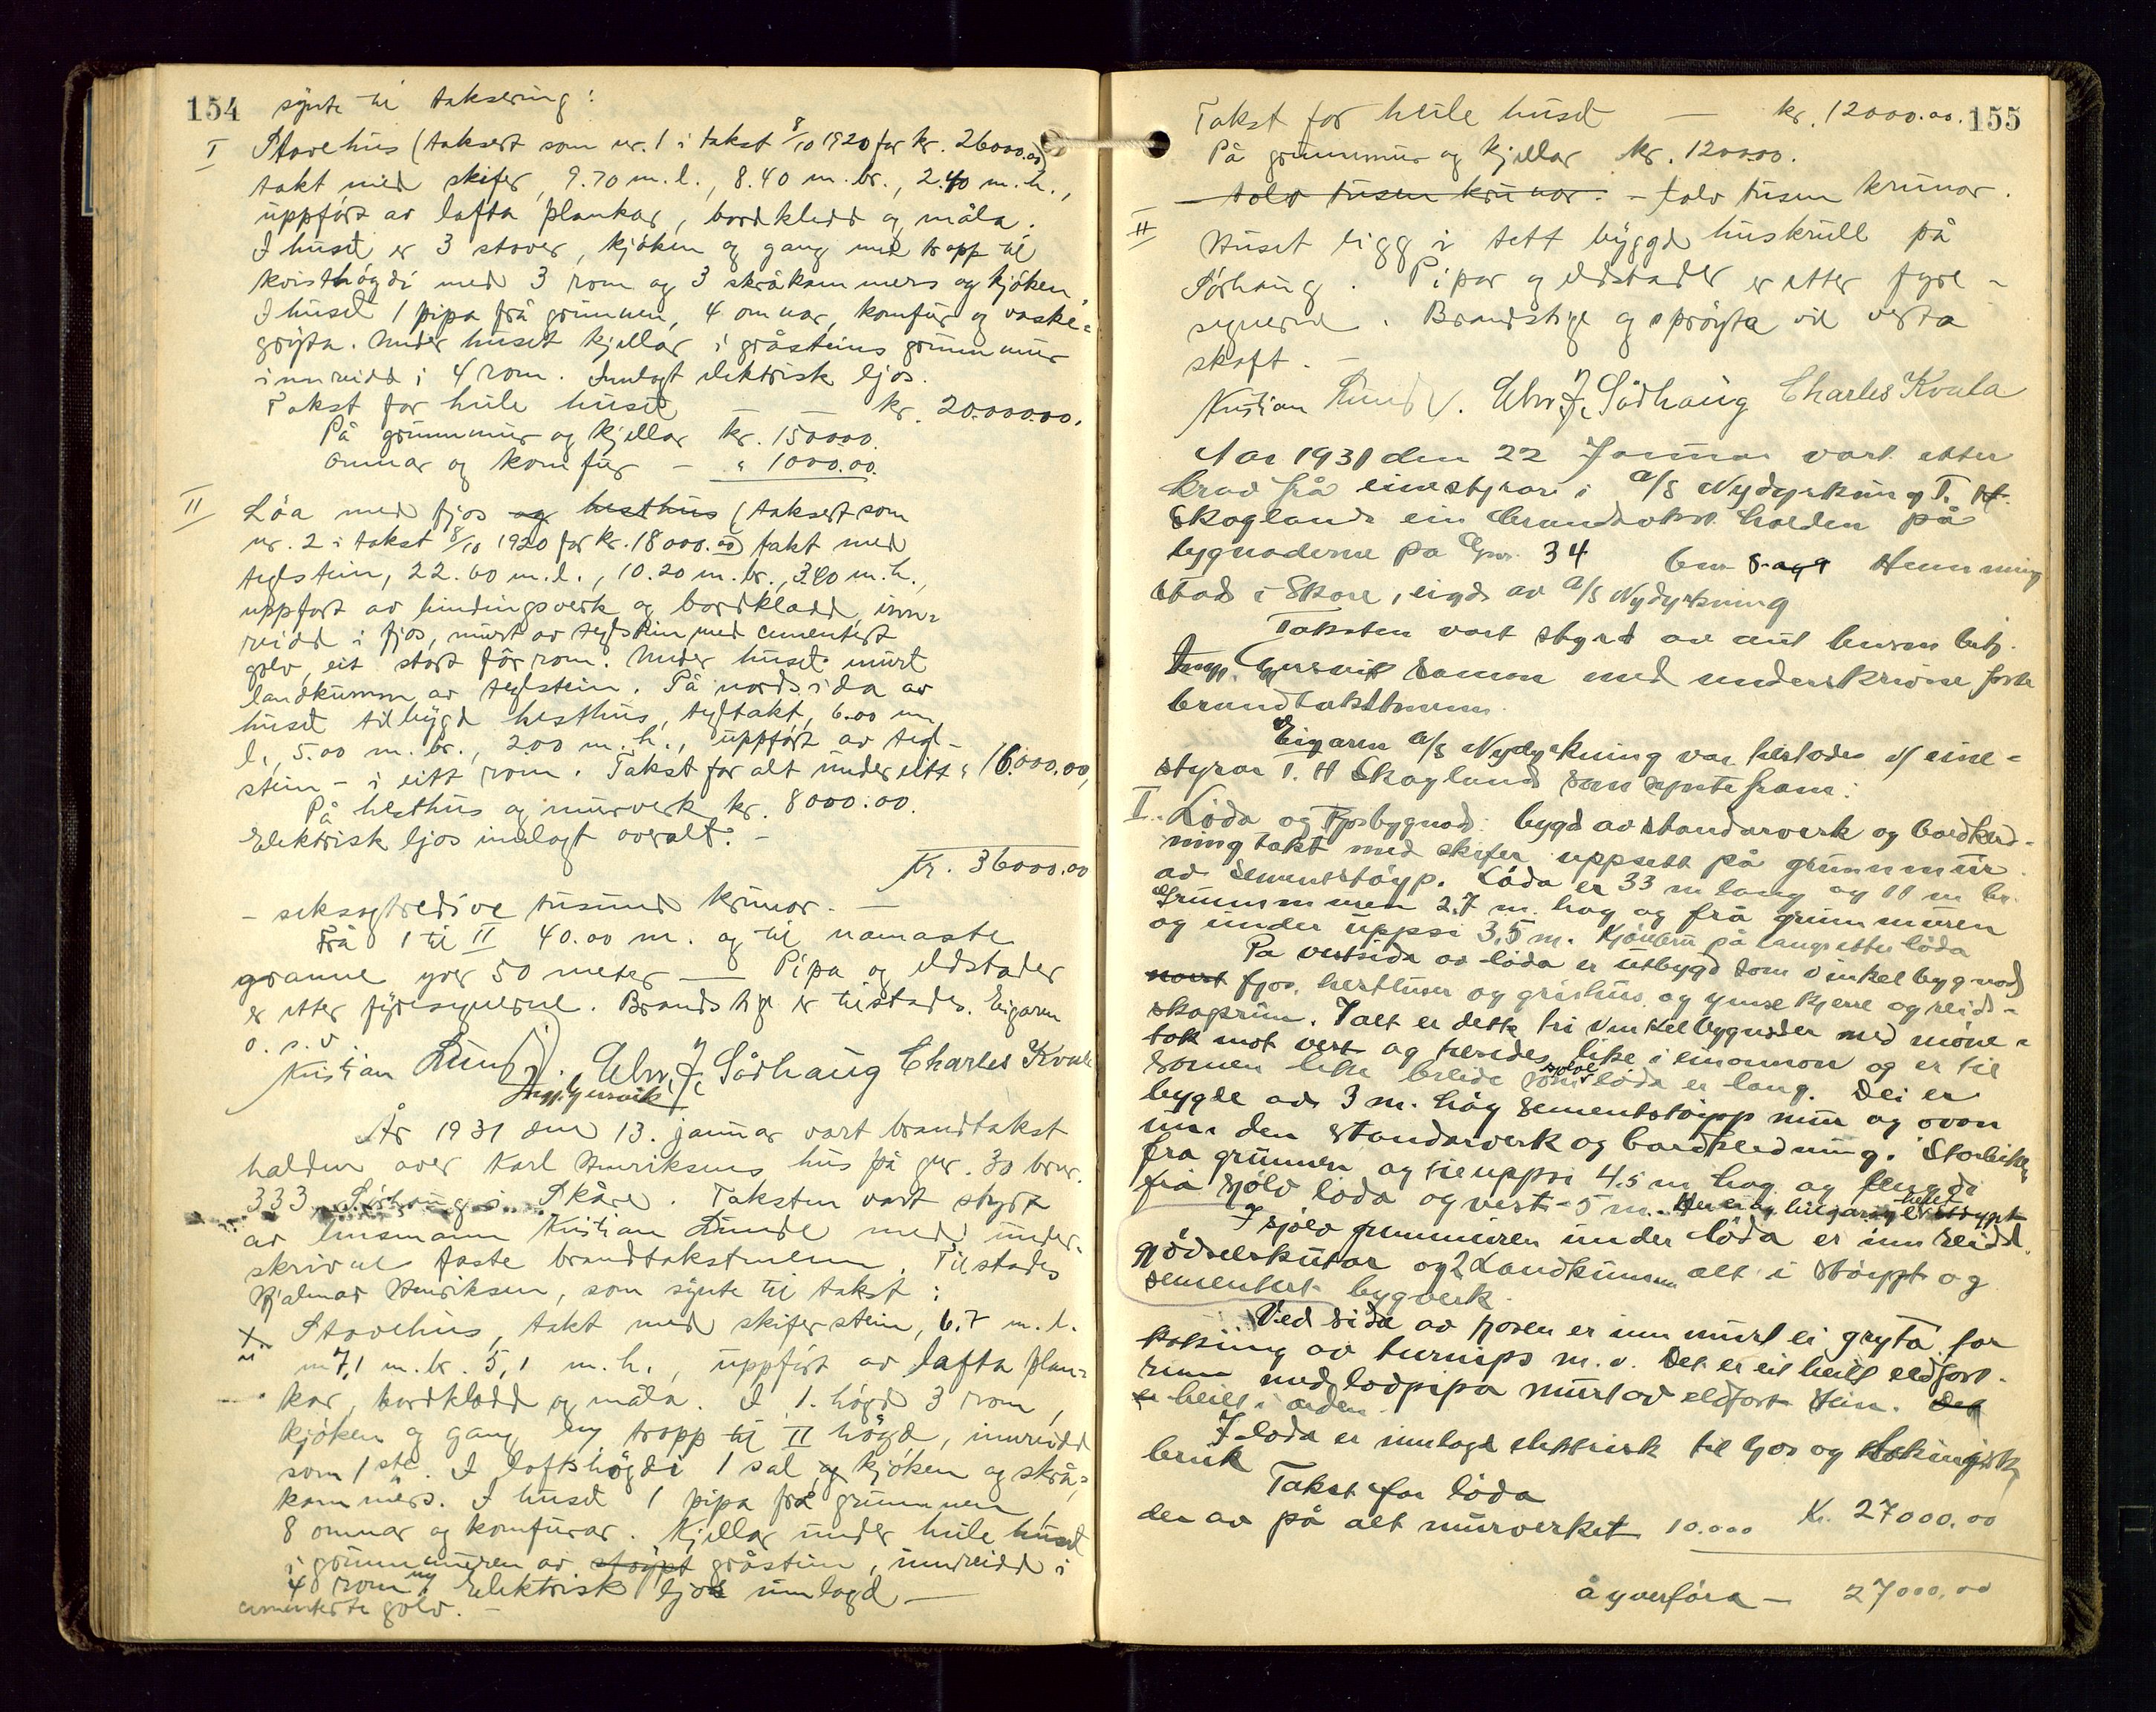 154
synte til taksering:
I Stovehus (taksert som nr. 1 i takst 8/10 1920 for kr. 26000.00)
takt med skifer, 9.70 m. l., 8.40 m. br., 2.40 m. h.,
uppført av lafta plankar, bordkledd og måla.
I huset er 3 stover, kjøken og gang med trapp til
kvisthøgdi med 3 rom og 3 skråkammers og kjøken.
I huset 1 pipa frå grunnen, 4 omnar, komfur og vaske-
gryta. Under huset kjellar i gråsteins grunnmur
innreidd i 4 rom. Innlagt elektrisk ljos.
Takst for heile huset — — kr. 20.000.00.
På grunnmur og kjellar kr. 1500.00.
omnar og komfur — " 1000.00.
II Löa med fjos og hesthus (taksert som
nr. 2 i takst 8/10 1920 for kr. 18000.00) takt med
teglstein, 22.60 m. l., 10.20 m. br., 3.40 m. h.,
uppført av bindingsverk og bordkledd, inn-
reidd i fjos, murt av teglstein med cementert
golv, eit stort fôrrom. Under huset murt
landkumm av teglstein. På nordsida av
huset tilbygd hesthus, tegltakt, 6.00 m.
l., 5.00 m. br., 2.00 m. h., uppført av tegl-
stein - i eitt rom. Takst for alt under eitt " 16.000.00,
På hesthus og murverk kr. 8000.00.
Elektrisk ljos innlagt overalt. -
Kr. 36000.00
- seksogtredive tusund krunor. -
Frå I til II 40.00 m. og til næmaste
granne yver 50 meter — Pipa og eldstader
er etter fyresegnerne. Brandstige er tilstades. Eigaren
o. s. v.
Kristian Lunde. Elnr. J. Sørhaug Charles Kvala
Ingv. Gjersvik
År 1931 den 13. januar vart brandtakst
halden over Karl Henriksens hus på gnr. 30 bnr.
333 Sørhaug i Skåre. Taksten vart styrt
av lensmann Kristian Lunde med under-
skrivne faste brandtakstmenn. Tilstades
Hjalmar Henriksen, som synte til takst:
Stovehus, takt med skiferstein, 6.7 m. l.
7,1 m. br. 5,1 m. h., uppført av lafta plan-
kar, bordkledd og måla. I 1. høgd 3 rom,
kjøken og gang og trapp til II høgd, innreidd
som 1ste. I loftshøgdi 1 sal og kjøken og skrå-
kammers. I huset 1 pipa frå grunnen,
8 omnar og komfurar. Kjellar under heile huset
i grunnmuren av støypt gråstein, innreidd i
4 rom og Elektrisk ljos innlagd —
cementerte golv. -
155
Takst for heile huset — kr. 12000.00.
På grunnmur og kjellar kr. 1200.00.
- tolv tusen krunor. - tolv tusen krunor.
II Huset ligg i tett byggd huskrull på
Sørhaug. Pipar og eldstader er etter fyre-
segnerne. Brandstige og sprøyta vil verta
skaft. -
Kristian Lunde. Elnr. J. Sørhaug Charles Kvala
Aar 1931 den 22 Januar vart etter
krav frå einestyrar i A/S Nydyrkning T. H.
Skogland ein brandtakst halden på
bygnaderne på Gnr. 34 bnr 8 og 9 Hemming
stad i Skare, eigd av A/S Nydyrkning
Taksten vart styrd av aut lensm betj.
Ingv. Gjersvik saman med underskrivne faste
brandtakstmenn.
Eigaren A/S Nydyrkning var tilstades v/ eine-
styrar T. H Skogland som synte fram:
I. Løda og Fjosbygnad: bygd av standarverk og bordkled-
ning takt med skifer uppsett på grunnmur
av Sementstøyp. Løda er 33 m lang og 11 m br.
Grunnmuren 2,7 m. høg og frå grunnmuren
og under uppsi 3,5 m. Kjørebru på langs etter løda
På vestsida av løda er utbygd som vinkelbygnad
fjos, hesthus og grishus og ymse kjerre og reid-
skaprum. I alt er dette tri vinkelbygnader med møne-
tak mot vest og tilsides like i einannan og er til
somen like breide som sjølve løda er lang. Dei er
bygde av 3 m. høg sementstøypp mur og ovan
um den standarverk og bordkledning.
fra grunnen og til uppsi 4,5 m høg og lengde
frå sjølv løda og vest - 5 m.
I sjølv grunnmuren under löda er innreidd
gjødselskutar og 2 Landkummar alt i støypt og
sementert bygverk.
Ved sida av fjosen er innmurt ei gryta for
koking av turnips m. v. Det er eit heilt eldfast
rum med lodpipa murt av eldfast stein. Det
er heilt i orden
I løda er innlagd elektrisk til ljos og kokingisk
bruk
Takst for löda Kr. 27000.00
der av på alt murverket 10.000
å yverføra — 27000.00